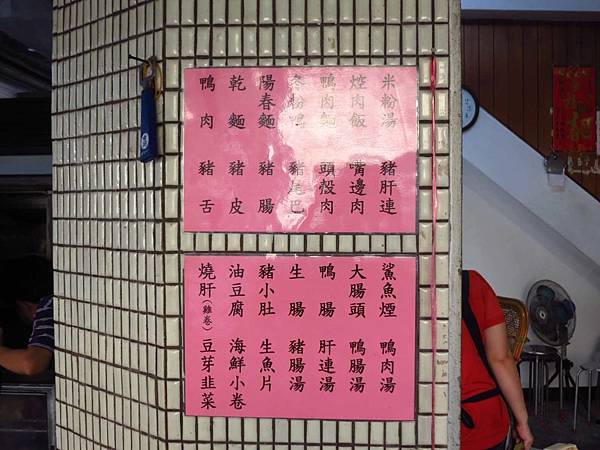 米粉湯　豬肝連
焢肉飯　嘴邊肉
鴨肉麵　頭殼肉
冬粉鴨　豬尾巴
陽春麵　豬腸
乾麵　豬皮
鴨肉　豬舌
鯊魚煙　鴨肉湯
大腸頭　鴨腸湯
鴨腸　肝連湯
生腸　豬腸湯
豬小肚　生魚片
油豆腐　海鮮小卷
燒肝（雞卷）豆芽韭菜